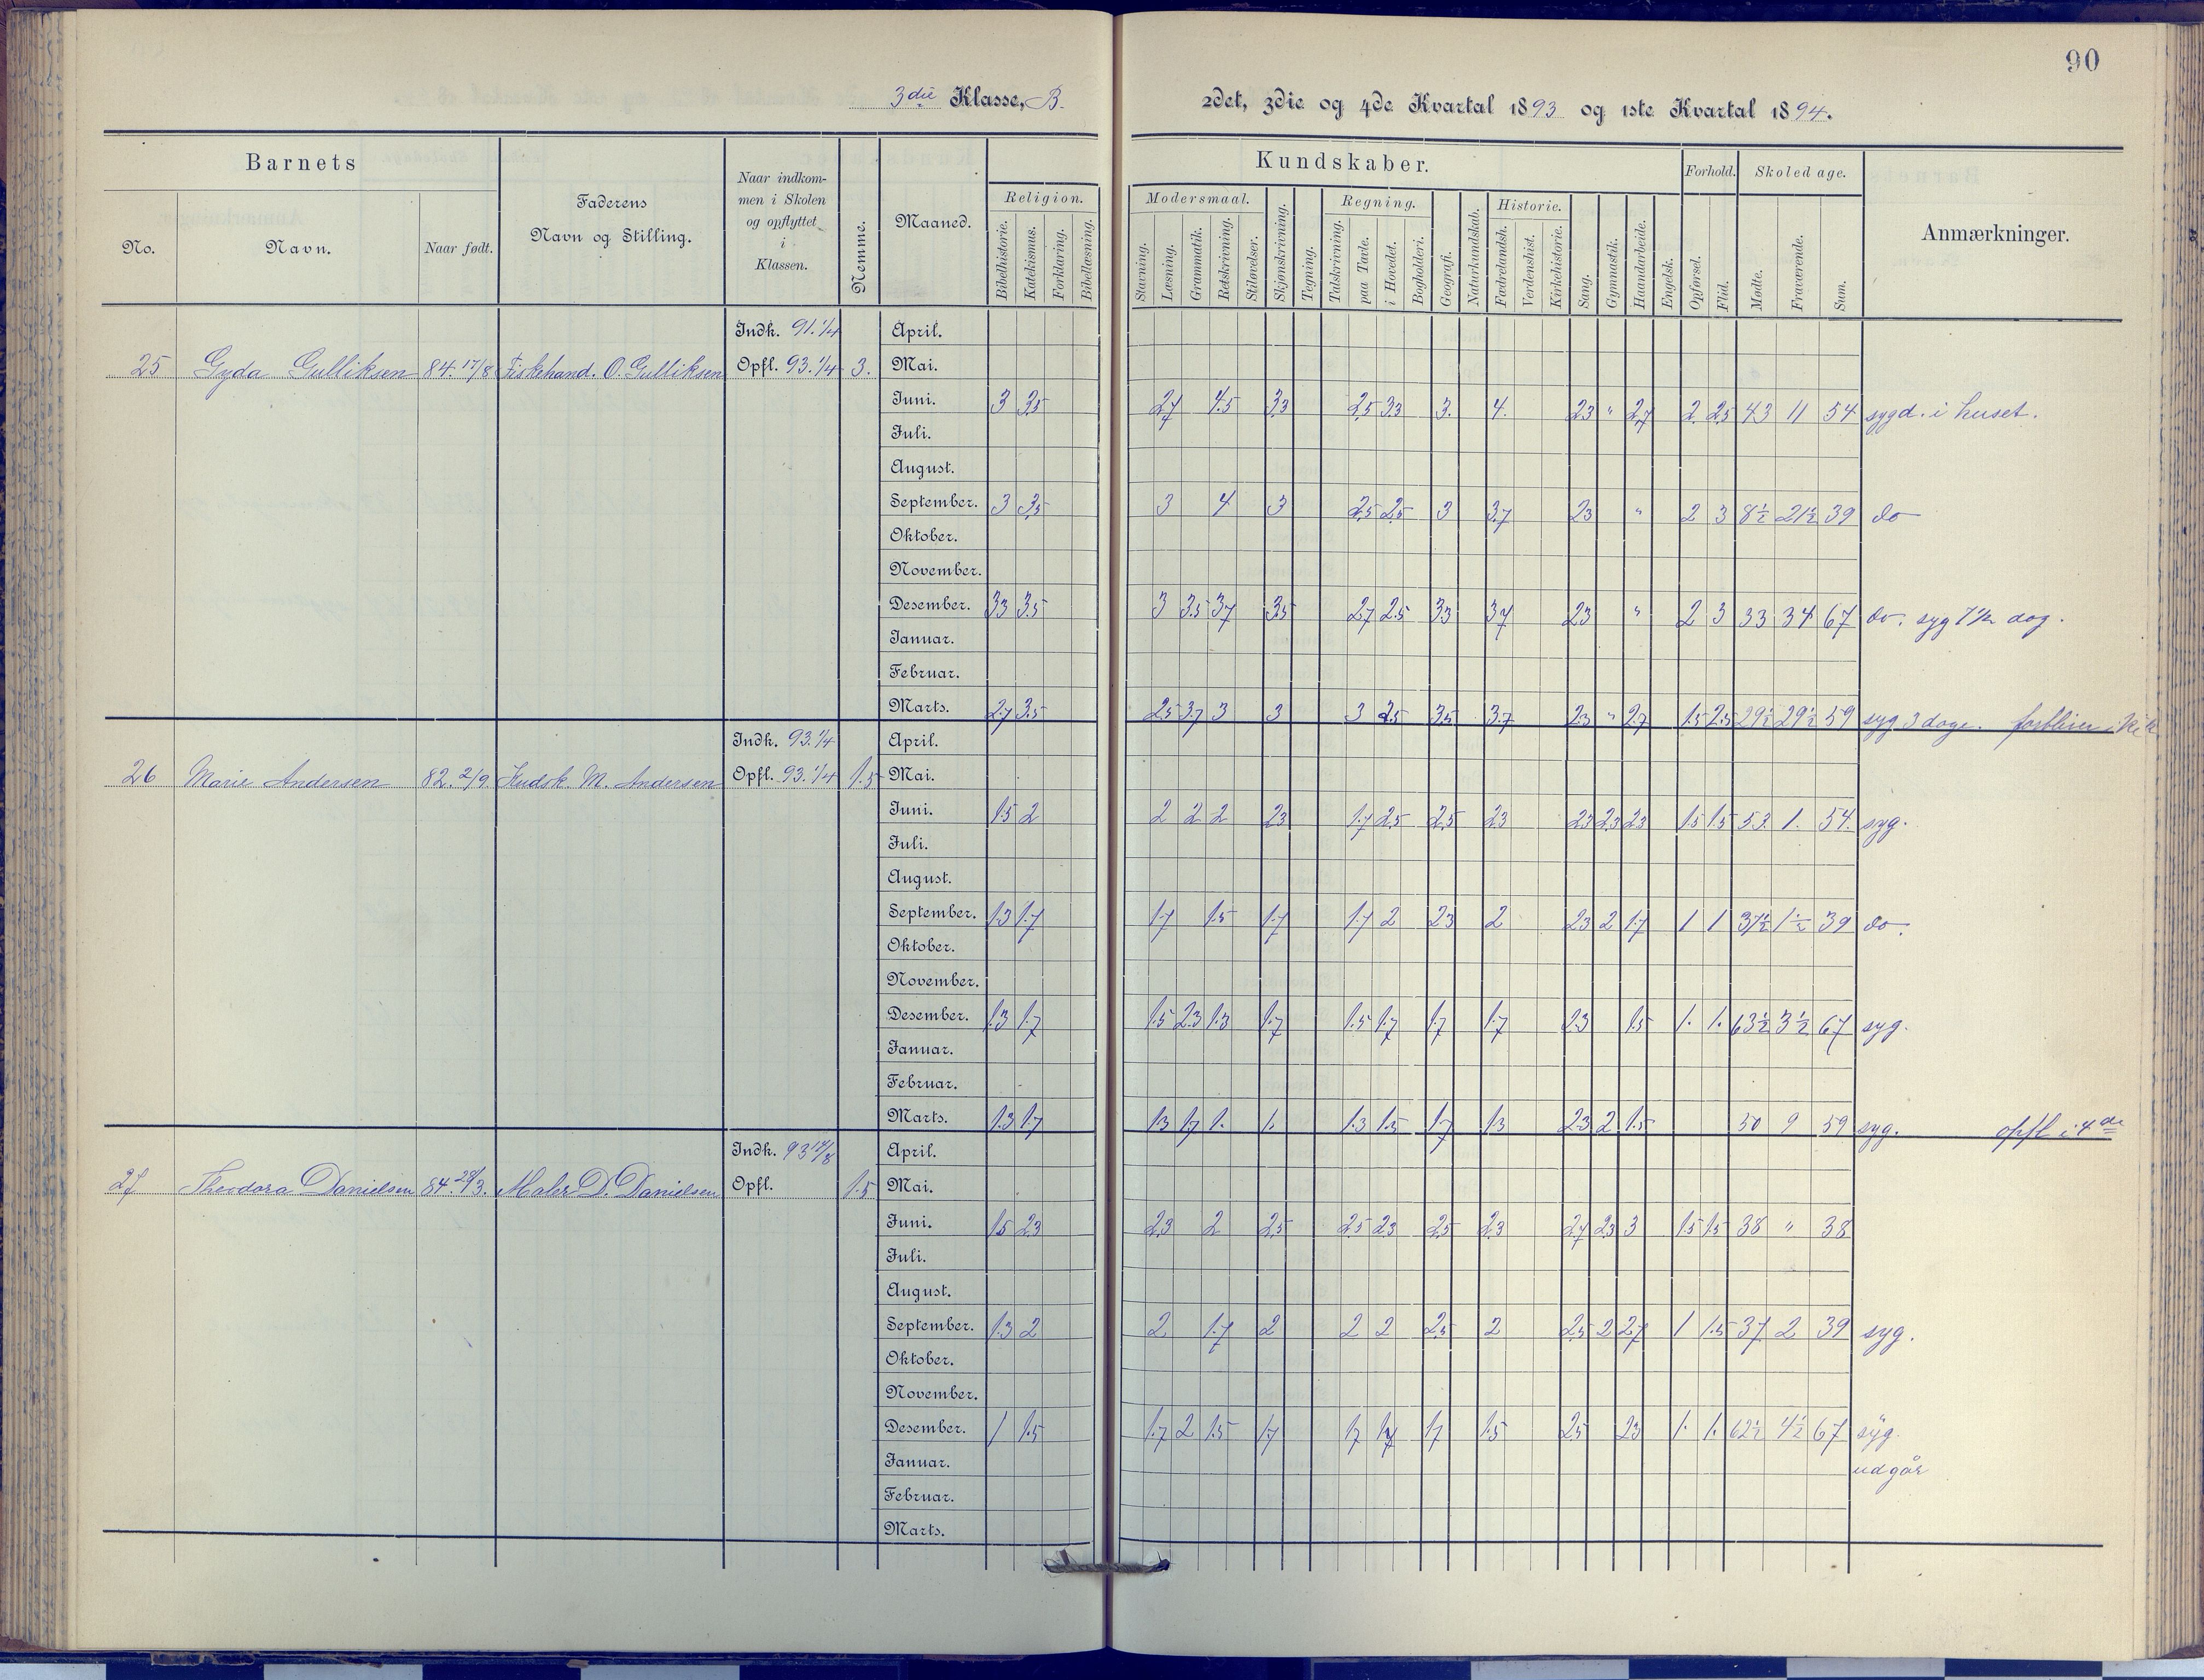 90
3die Klasse, B.
2det, 3die og 4de Kvartal 1893 og 1ste Kvartal 1894.
Barnets
No.
Navn.
Naar født.
Faderens
Navn og Stilling.
Naar indkom-
men i Skolen
og opflyttet
i
Klassen.
Nemme.
Maaned.
Religion.
Bibelhistorie.
Katekismus.
Forklaring.
Bibellæsning.
Kundskaber.
Modersmaal.
Stavning.
Læsning.
Grammatik.
Retskrivning.
Stiløvelser.
Skjønskrivning.
Tegning.
Regning.
Talskrivning.
paa Tavle.
i Hovedet.
Bogholderi.
Geografi.
Naturkundskab.
Historie.
Fædrelandsh.
Verdenshist.
Kirkehistorie.
Sang.
Gymnastik.
Haandarbeide.
Engelsk.
Forhold.
Opførsel.
Flid.
Skoledage.
Mødte.
Fraværende.
Sum.
Anmærkninger.
Indk. 91.1/4 April.
25 Gyda Gulliksen 84.17/8 Fiskehand. O. Gulliksen Opfl. 93.1/4 3. Mai.
Juni. 3 3.5 2.7 4.5 3.3 2.5 3.3 3. 4. 2.3 " 2.7 2. 2.5 43 11 54 sygd. i huset.
Juli.
August.
September. 3 3.5 3 4 3 2.5 2.5 3 3.7 2.3 " 2 3 8½ 21½ 39 do
Oktober.
November.
Desember. 3.3 3.5 3 3.5 3.7 3.5 2.7 2.5 3.3 3.7 2.3 " 2 3 33 34 67 do. syg 7½ dag.
Januar.
Februar.
Marts. 2.7 3.5 2.5 3.7 3 3 3 2.5 3.5 3.7 2.3 " 2.7 1.5 2.5 29½ 29½ 59 syg 3 dage. forbliver i
Indk. 93.1/4 April.
26 Marie Andersen 82.2/9. Kudsk. M. Andersen Opfl. 93.1/4 1.5 Mai.
Juni. 1.5 2 2 2 2 2.3 1.7 2.5 2.5 2.3 2.3 2.3 2.3 1.5 1.5 53 1. 54. syg.
Juli.
August.
September. 1.3 1.7 1.7 1.5 1.7 1.7 2 2.3 2 2.3 2 1.7 1 1 37½ 1½ 39 do.
Oktober.
November.
Desember. 1.3 1.7 1.5 2.3 1.3 1.7 1.5 1.7 1.7 1.7 2.3 1.5 1. 1. 63½ 3½ 67 syg.
Januar.
Februar.
Marts. 1.3 1.7 1.3 1.7 1. 1. 1.3 1.5 1.7 1.3 2.3 2 1.5 50 9 59 syg. opfl i 4de
Indk. 93 17/8 April.
27 Theodora Danielsen 84.29/3. Maler D. Danielsen Opfl. 1.5 Mai.
Juni. 1.5 2.3 2.3 2 2.5 2.5 2.3 2.5 2.3 2.7 2.3 3 1.5 1.5 38 " 38
Juli.
August.
September. 1.3 2 2 1.7 2 2 2 2.5 2 2.5 2 2.7 1 1.5 37 2 39 syg.
Oktober.
November.
Desember. 1 1.5 1.7 2 1.5 1.7 1.7 1.7 1.7 1.5 2.5 2.3 1. 1. 62½ 4½ 67 syg.
Januar. udgår
Februar.
Marts.